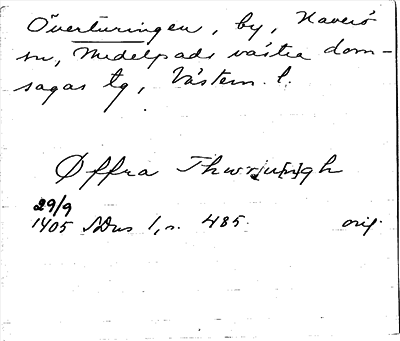 Överturingen, by, Haverö
sn, Medelpads västra dom-
sagas tg, Västern. l.
Øffra Thwrju[n]gh
29/9
1405 SDns 1, s. 485. orig.